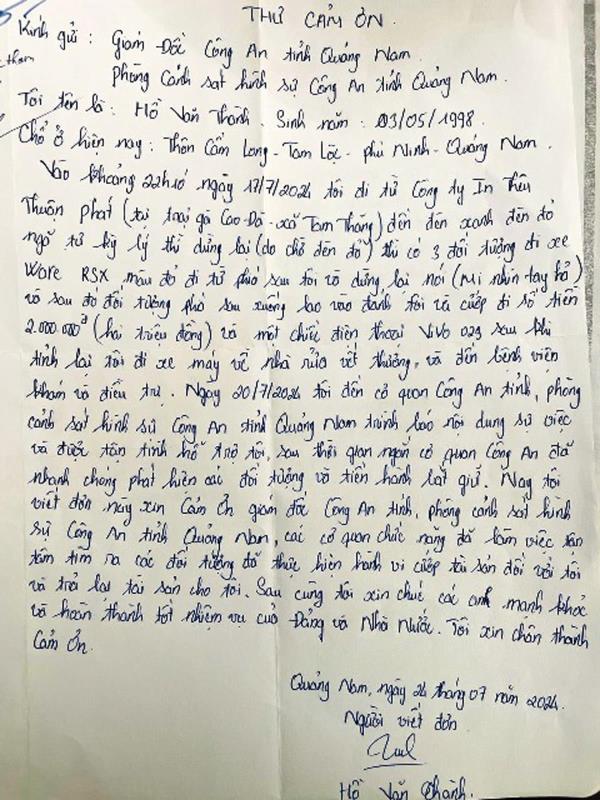 THƯ CẢM ƠN.
Kính gửi : Giám Đốc Công An tỉnh Quảng Nam.
Phòng Cảnh sát hình sự Công An tỉnh Quảng Nam.
Tôi tên là : Hồ Văn Thành. Sinh năm : 03/05/1998.
Chỗ ở hiện nay : Thôn Cẩm Long - Tam Lộc - phú Ninh - Quảng Nam.
Vào khoảng 22h10 ngày 17/7/2024 tôi đi từ Công ty In Thêu
Thuận Phát (tại trại gà Cao-Đá - xã Tam Thăng) đến đèn xanh đèn đỏ
ngã tư kỳ lý thì dừng lại (do chờ đèn đỏ) thì có 3 đối tượng đi xe
Wave RSX màu đỏ đi từ phía sau tôi và dừng lại nói (Mi nhìn tay hả)
và sau đó đối tượng phía sau xuống lao vào đánh tôi và cướp đi số tiền
2.000.000đ (hai triệu đồng) và một chiếc điện thoại ViVo sau khi
tỉnh lại tôi đi xe máy về nhà rửa vết thương, và đến bệnh viện
khám và điều trị. Ngày 20/7/2024 tôi đến cơ quan Công An tỉnh, phòng
cảnh sát hình sự Công An tỉnh Quảng Nam trình báo nội dung sự việc
và được tận tình hỗ trợ tôi, sau thời gian ngắn cơ quan Công An đã
nhanh chóng phát hiện các đối tượng và tiến hành bắt giữ. Nay tôi
viết đơn này xin Cảm Ơn giám đốc Công An tỉnh, phòng cảnh sát hình
sự Công An tỉnh Quảng Nam, các cơ quan chức năng đã làm việc tận
tâm tìm ra các đối tượng đã thực hiện hành vi cướp tài sản đối với tôi
và trả lại tài sản cho tôi. Sau cùng tôi xin chúc các anh mạnh khỏe
và hoàn thành tốt nhiệm vụ của Đảng và Nhà Nước. Tôi xin chân thành
Cảm Ơn.
Quảng Nam, ngày 24 tháng 07 năm 2024.
Người viết đơn
Hồ Văn Thành.